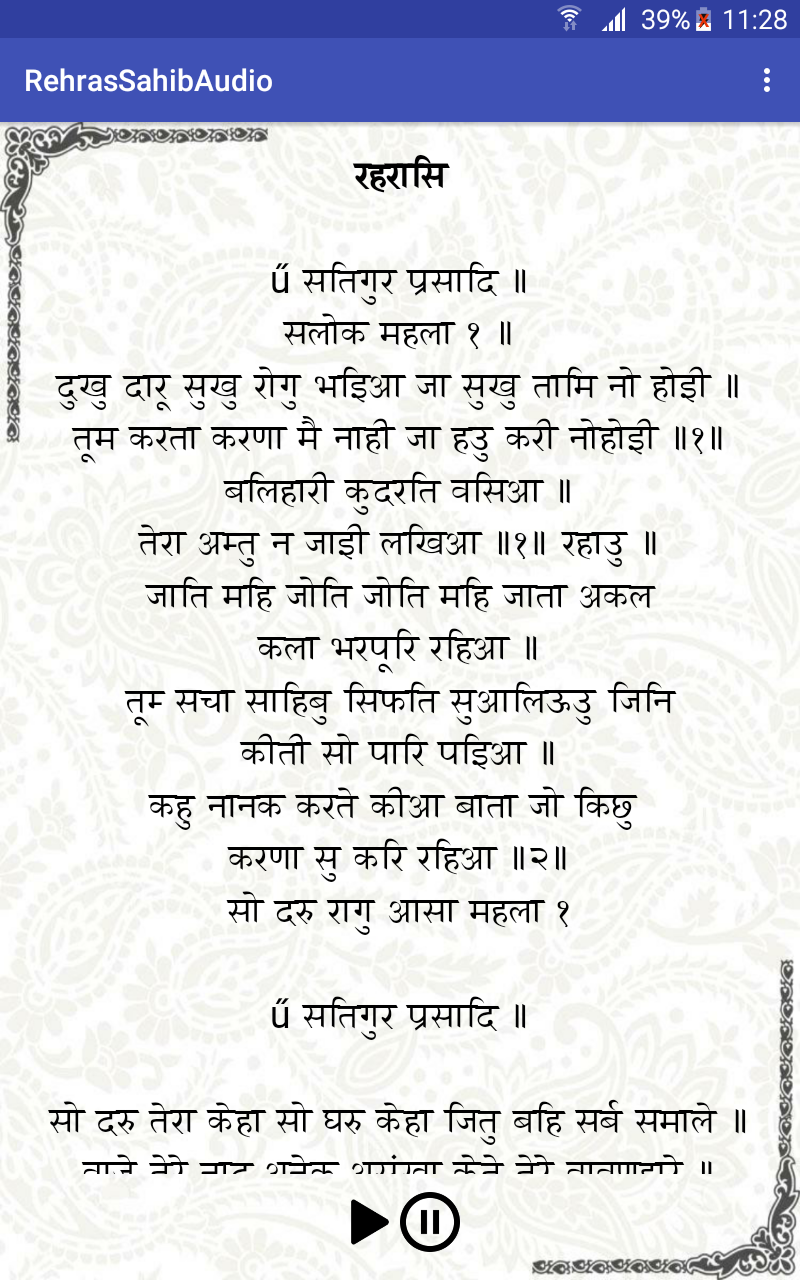 39% 11:28
RehrasSahibAudio
रहरासि
ű सतिगुर प्रसादि ॥
सलोक महला १ ॥
दुखु दारू सुखु रोगु भइिआ जा सुखु तामि नो होइी ॥
तूम करता करणा मै नाही जा हउु करी नोहोइी ॥१॥
बलिहारी कुदरति वसिआ ॥
तेरा अम्तु न जाइी लखिआ ॥१॥ रहाउु ॥
जाति महि जोति जोति महि जाता अकल
कला भरपूरि रहिआ ॥
तूम्‍ सचा साहिबु सिफति सुआलिऊउु जिनि
कीती सो पारि पइिआ ॥
कहु नानक करते कीआ बाता जो किछु
करणा सु करि रहिआ ॥२॥
सो दरु रागु आसा महला १
ű सतिगुर प्रसादि ॥
सो दरु तेरा केहा सो घरु केहा जितु बहि सर्ब समाले ॥
वाजे तेरे नाद अनेक असंखा केते तेरे वावणहारे ॥